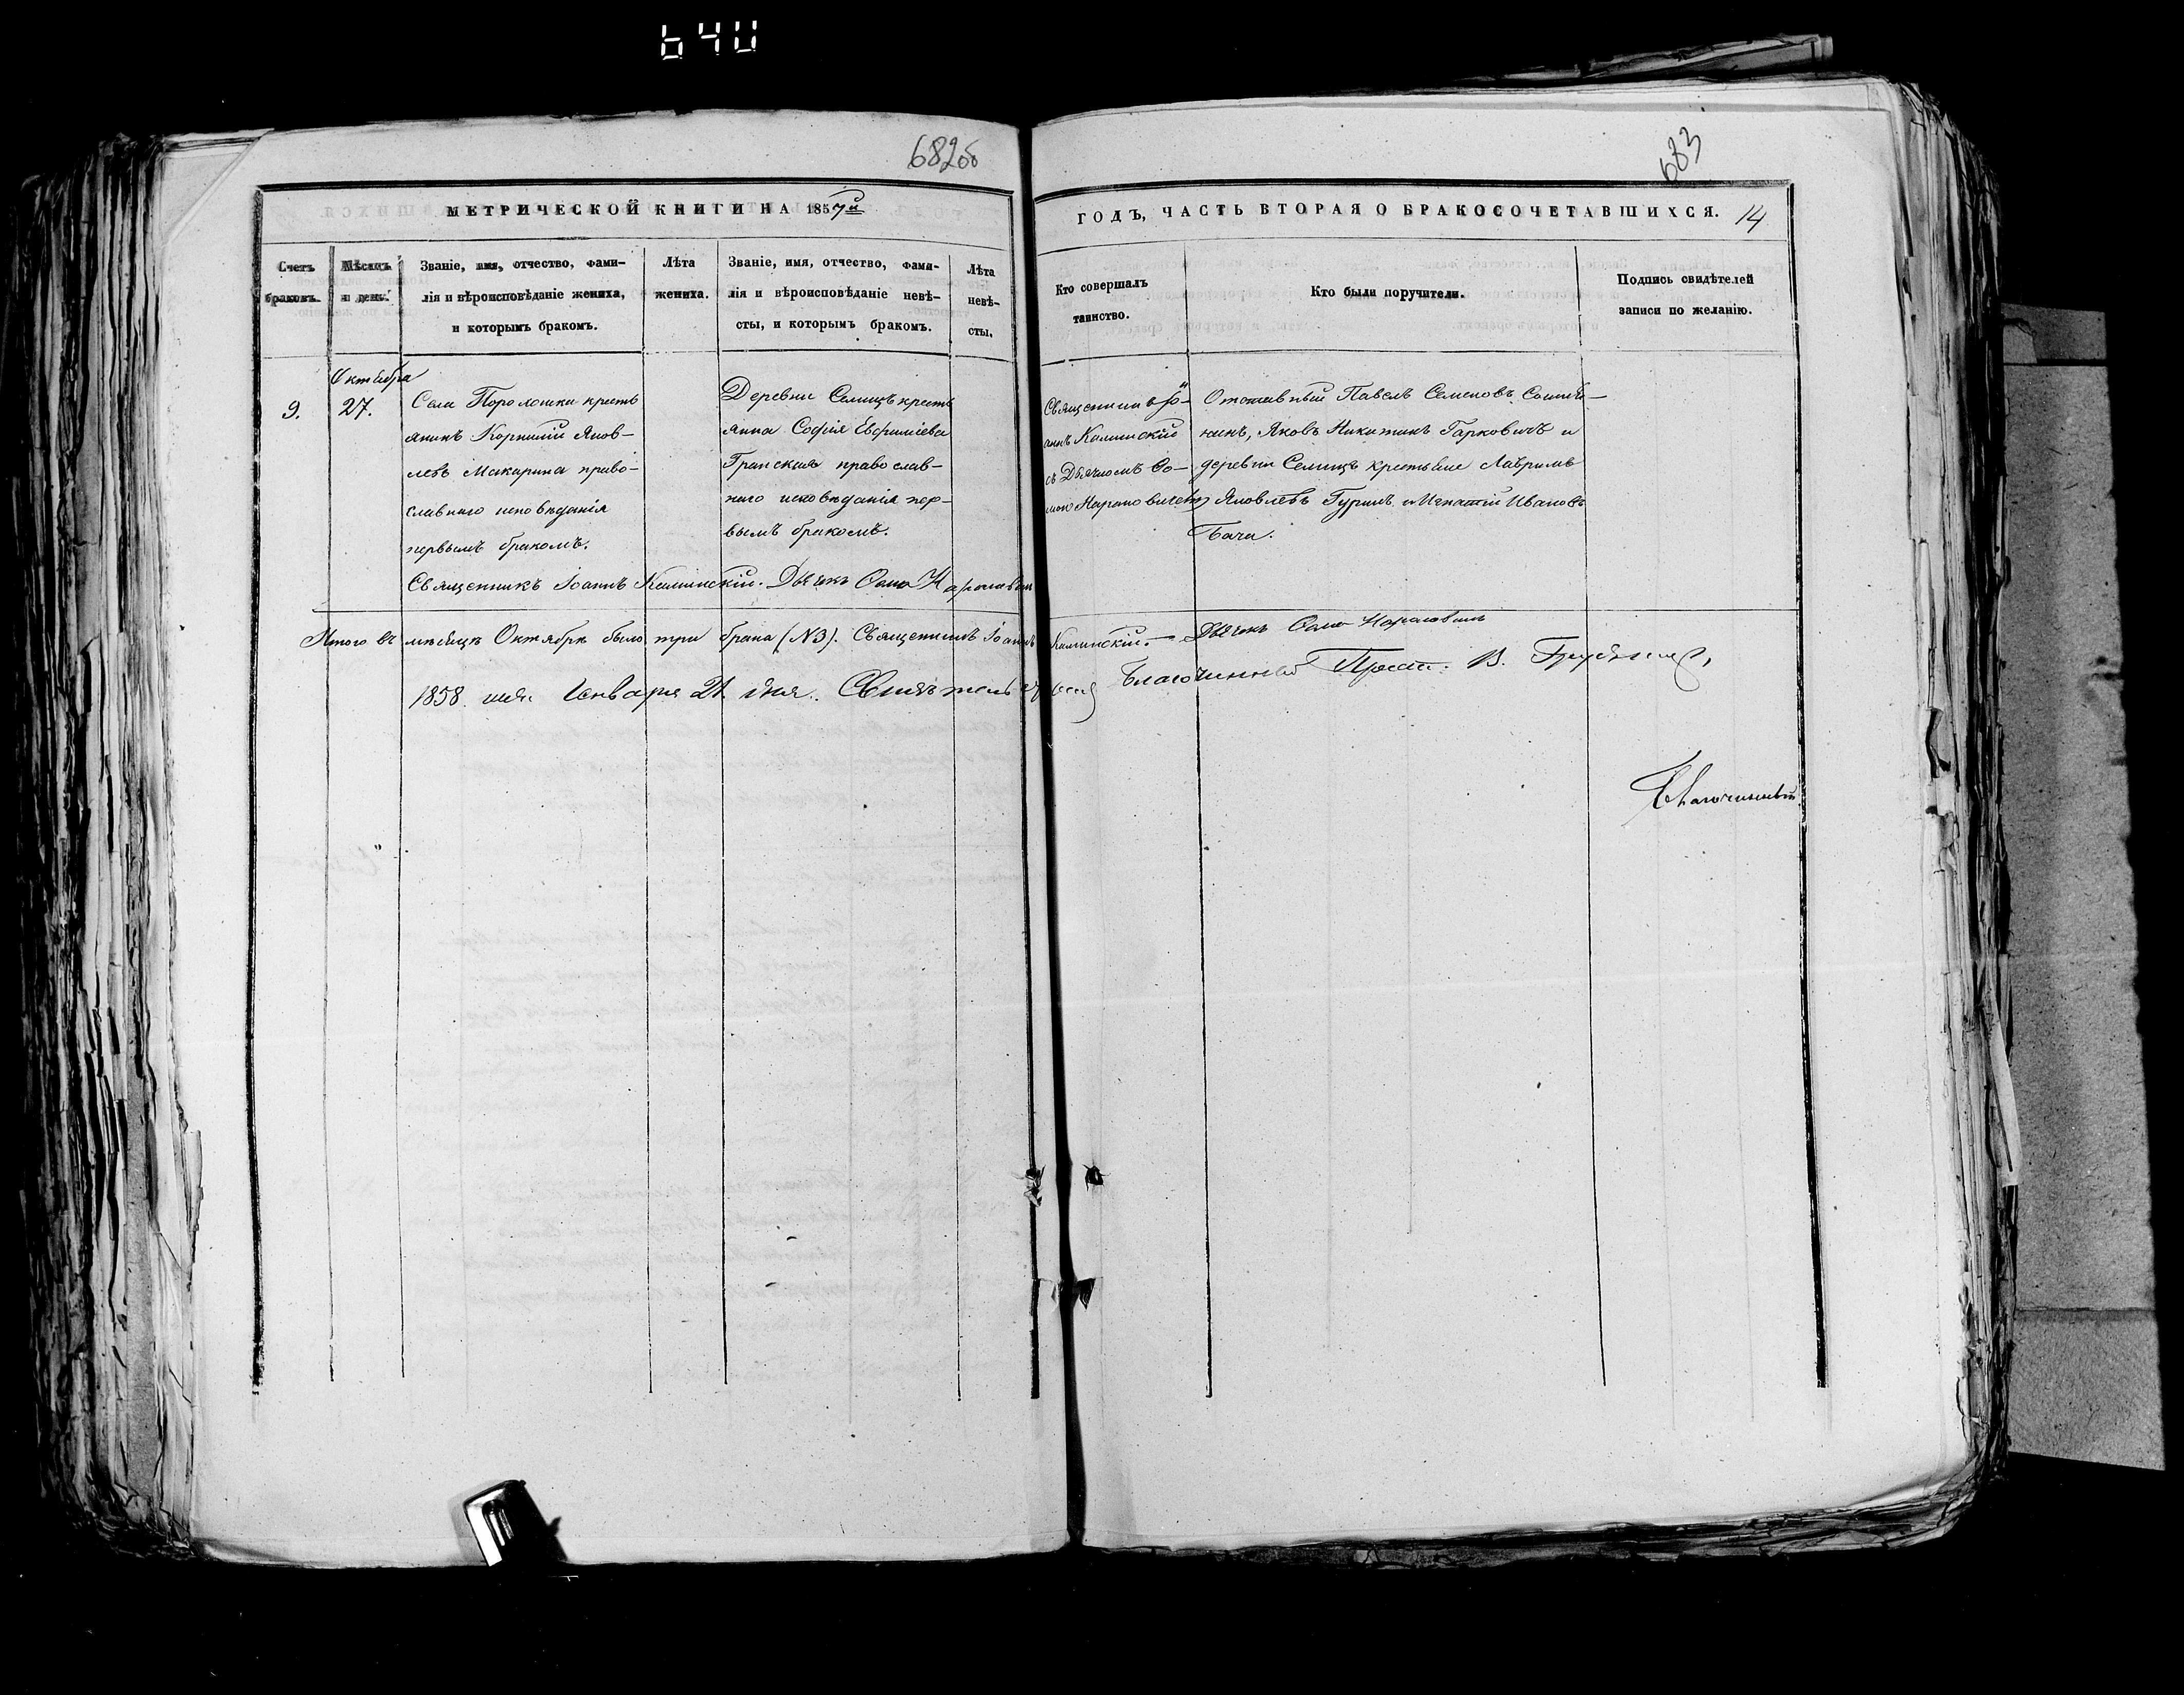 640
682об
683
МЕТРИЧЕСКОЙ КНИГИ НА 1857й
ГОДЪ, ЧАСТЬ ВТОРАЯ О БРАКОСОЧЕТАВШИХСЯ. 14
Счетъ
браковъ.
Мѣсяцъ
и день.
Званіе, имя, отчество, фами-
лія и вѣроисповѣданіе жениха,
и которымъ бракомъ.
Лѣта
жениха.
Званіе, имя, отчество, фами-
лія и вѣроисповѣданіе невѣ-
сты, и которымъ бракомъ.
Лѣта
невѣ-
сты.
Кто совершалъ
таинство.
Кто были поручители.
Подпись свидѣтелей
записи по желанію.
9.
Октября
27.
Села кресть
янинъ Корнилій Яков-
левъ Макарина право-
славнаго исповѣданія
первымъ бракомъ.
Деревни Селищъ кресть
янка Софія Евфиміева
православ-
наго исповѣданія пер-
вымъ бракомъ.
Священникъ Іо-
аннъ Калинскій
съ Дьячкомъ Ѳо-
мою
Отставный Павелъ Семеновъ
Яковъ Никитинъ Гарковичъ и
деревни Селищъ крестьяне Лавринъ
Яковлевъ Гуринъ и Игнатій Ивановъ
Бача.
Священникъ Іоаннъ Калинскій. Дьячекъ Ѳома
Итого въ мѣсяцѣ Октябрѣ было три брака (N3). Священникъ Іоаннъ Калинскій. Дьячекъ Ѳома
1858 Января 21 дня. Благочинный В.
Благочинный